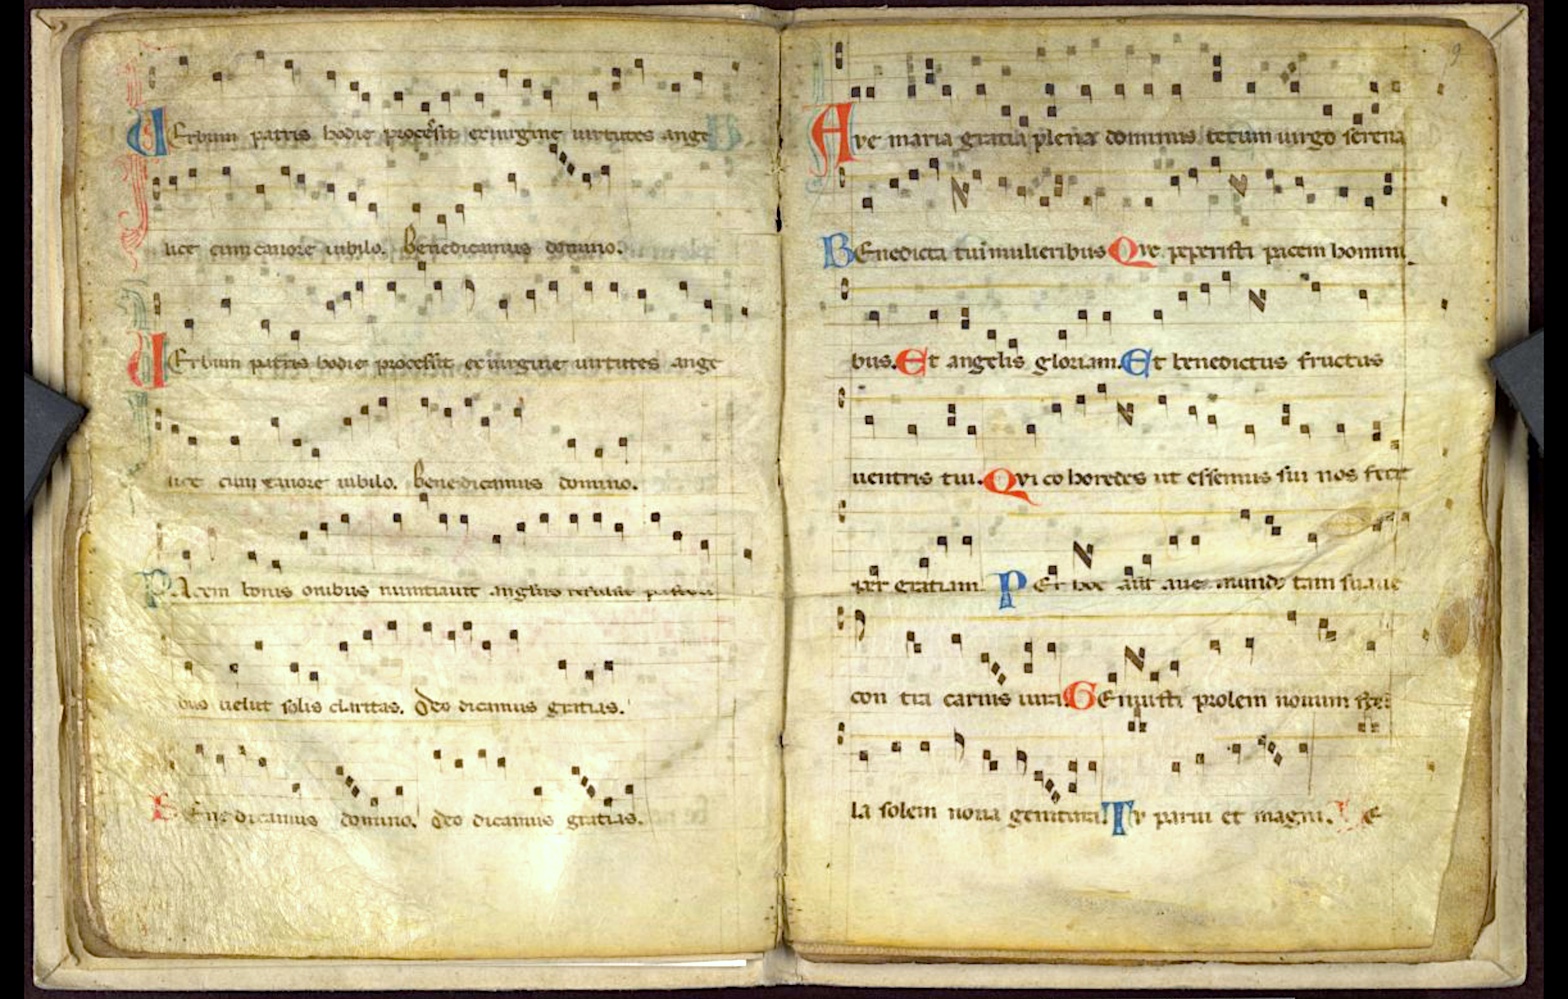 Verbum patris hodie processit ex uirgine uirtutes ange
lice cum canore iubilo. Benedicamus domino.
Verbum patris hodie processit ex uirgine uirtutes ange
lice cum canore iubilo. Benedicamus domino.
Pacem bonis onibus nuntiauit
uelut solis claritas. Deo dicamus gratias.
Benedicamus domino. Deo dicamus gratias.
9
Ave maria gratia plena dominus tecum uirgo serena
Benedicta tu in mulieribus Qve peperisti pacem homini
bus. Et angelis gloriam. Et benedictus fructus
uentris tui. Qvi coheredes ut essemus sui nos fecit
per gratiam Per hoc aut aue mundo tam suaue
con tra carnis iura Genuisti prolem nouum stel
la solem noua genitura. Tv parui et magni.